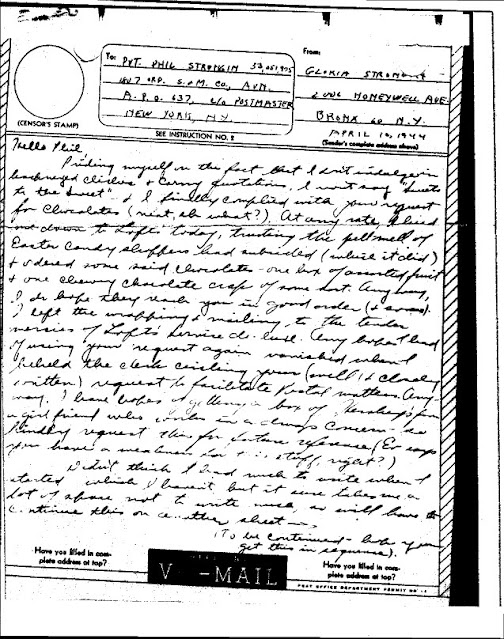 To:
PVT. PHIL STRONGIN 32,051,975
1807 ORD. S. & M. CO., AVN.
A.P.O. 637, c/o POSTMASTER
NEW YORK, N.Y.
From:
GLORIA STRONGIN
HONEYWELL AVE.
BRONX 60 N.Y.
APRIL 10, 1944
(Sender's complete address above)
(CENSOR'S STAMP)
SEE INSTRUCTION NO. 2
Hello Phil
Priding myself on the fact that I don't indulge in
hackneyed cliches & corny quotations, I won't say "Sweets
to the Sweet" & I finally complied with your request
for Chocolates (neat, eh what?). At any rate, I hied
down to Loft's today, trusting the pell mell of
Easter candy shoppers had subsided (which it did)
& ordered some said chocolates - one box of assorted fruit
& one chewy chocolate of some sort. Anyway,
I do hope they reach you in good order (& soon).
I left the wrapping & mailing to the tender
mercies of Loft's Service de luxe. Any hopes I had
of using your request again vanished when I
beheld the clerk circling yours (small & closely
written) request to facilitate Postal matters. Any-
way, I have hopes of getting a box of from
a girl friend who works in a concern - so
kindly request this for future reference (
you have a weakness for this stuff, right?)
I didn't think I had much to write when I
started which I haven't but it sure takes me a
lot of space not to write much, so will have to
continue this on another sheet
(To be continued - hope you
get this in sequence).
Have you filled in com-
plete address at top?
V - MAIL
Have you filled in com-
plete address at top?
POST OFFICE DEPARTMENT PERMIT NO.